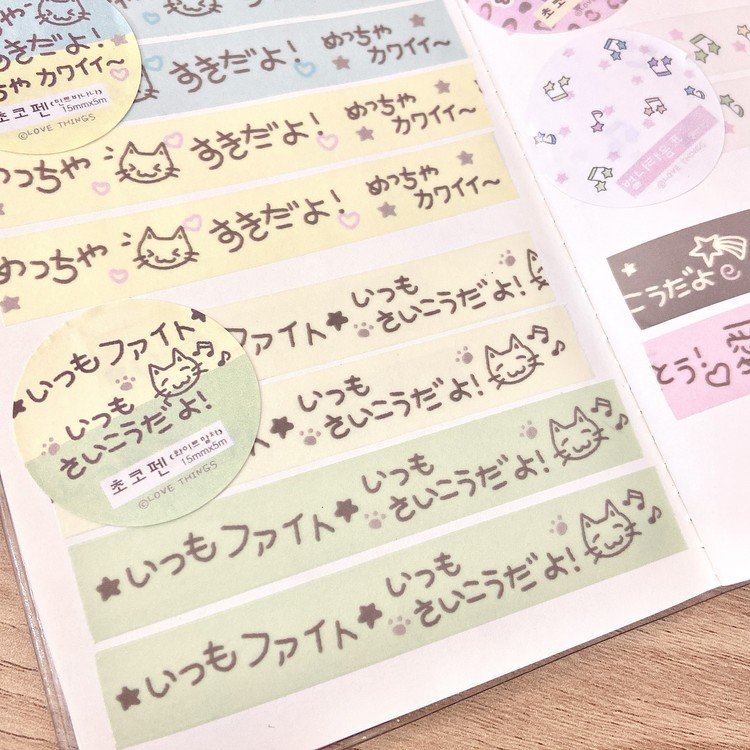 すきだよ!
ちゃ カワイイ〜
초코펜 (민트바나나)
15mmx5m
©LOVE THINGS
すきだよ! めっちゃ
カワイイ〜
めっちゃ すきだよ! めっちゃ
カワイイ〜
めっちゃ すきだよ! めっちゃ
カワイイ〜
いつもファイト
いつも
さいこうだよ!
초코펜 (화이트말차)
15mmx5m
©LOVE THINGS
ファイト いつも
さいこうだよ!
いつも
さいこうだよ!
いつも
さいこうだよ!
いつもファイト いつも
さいこうだよ!
いつもファイト いつも
さいこうだよ!
こうだよ
とう!